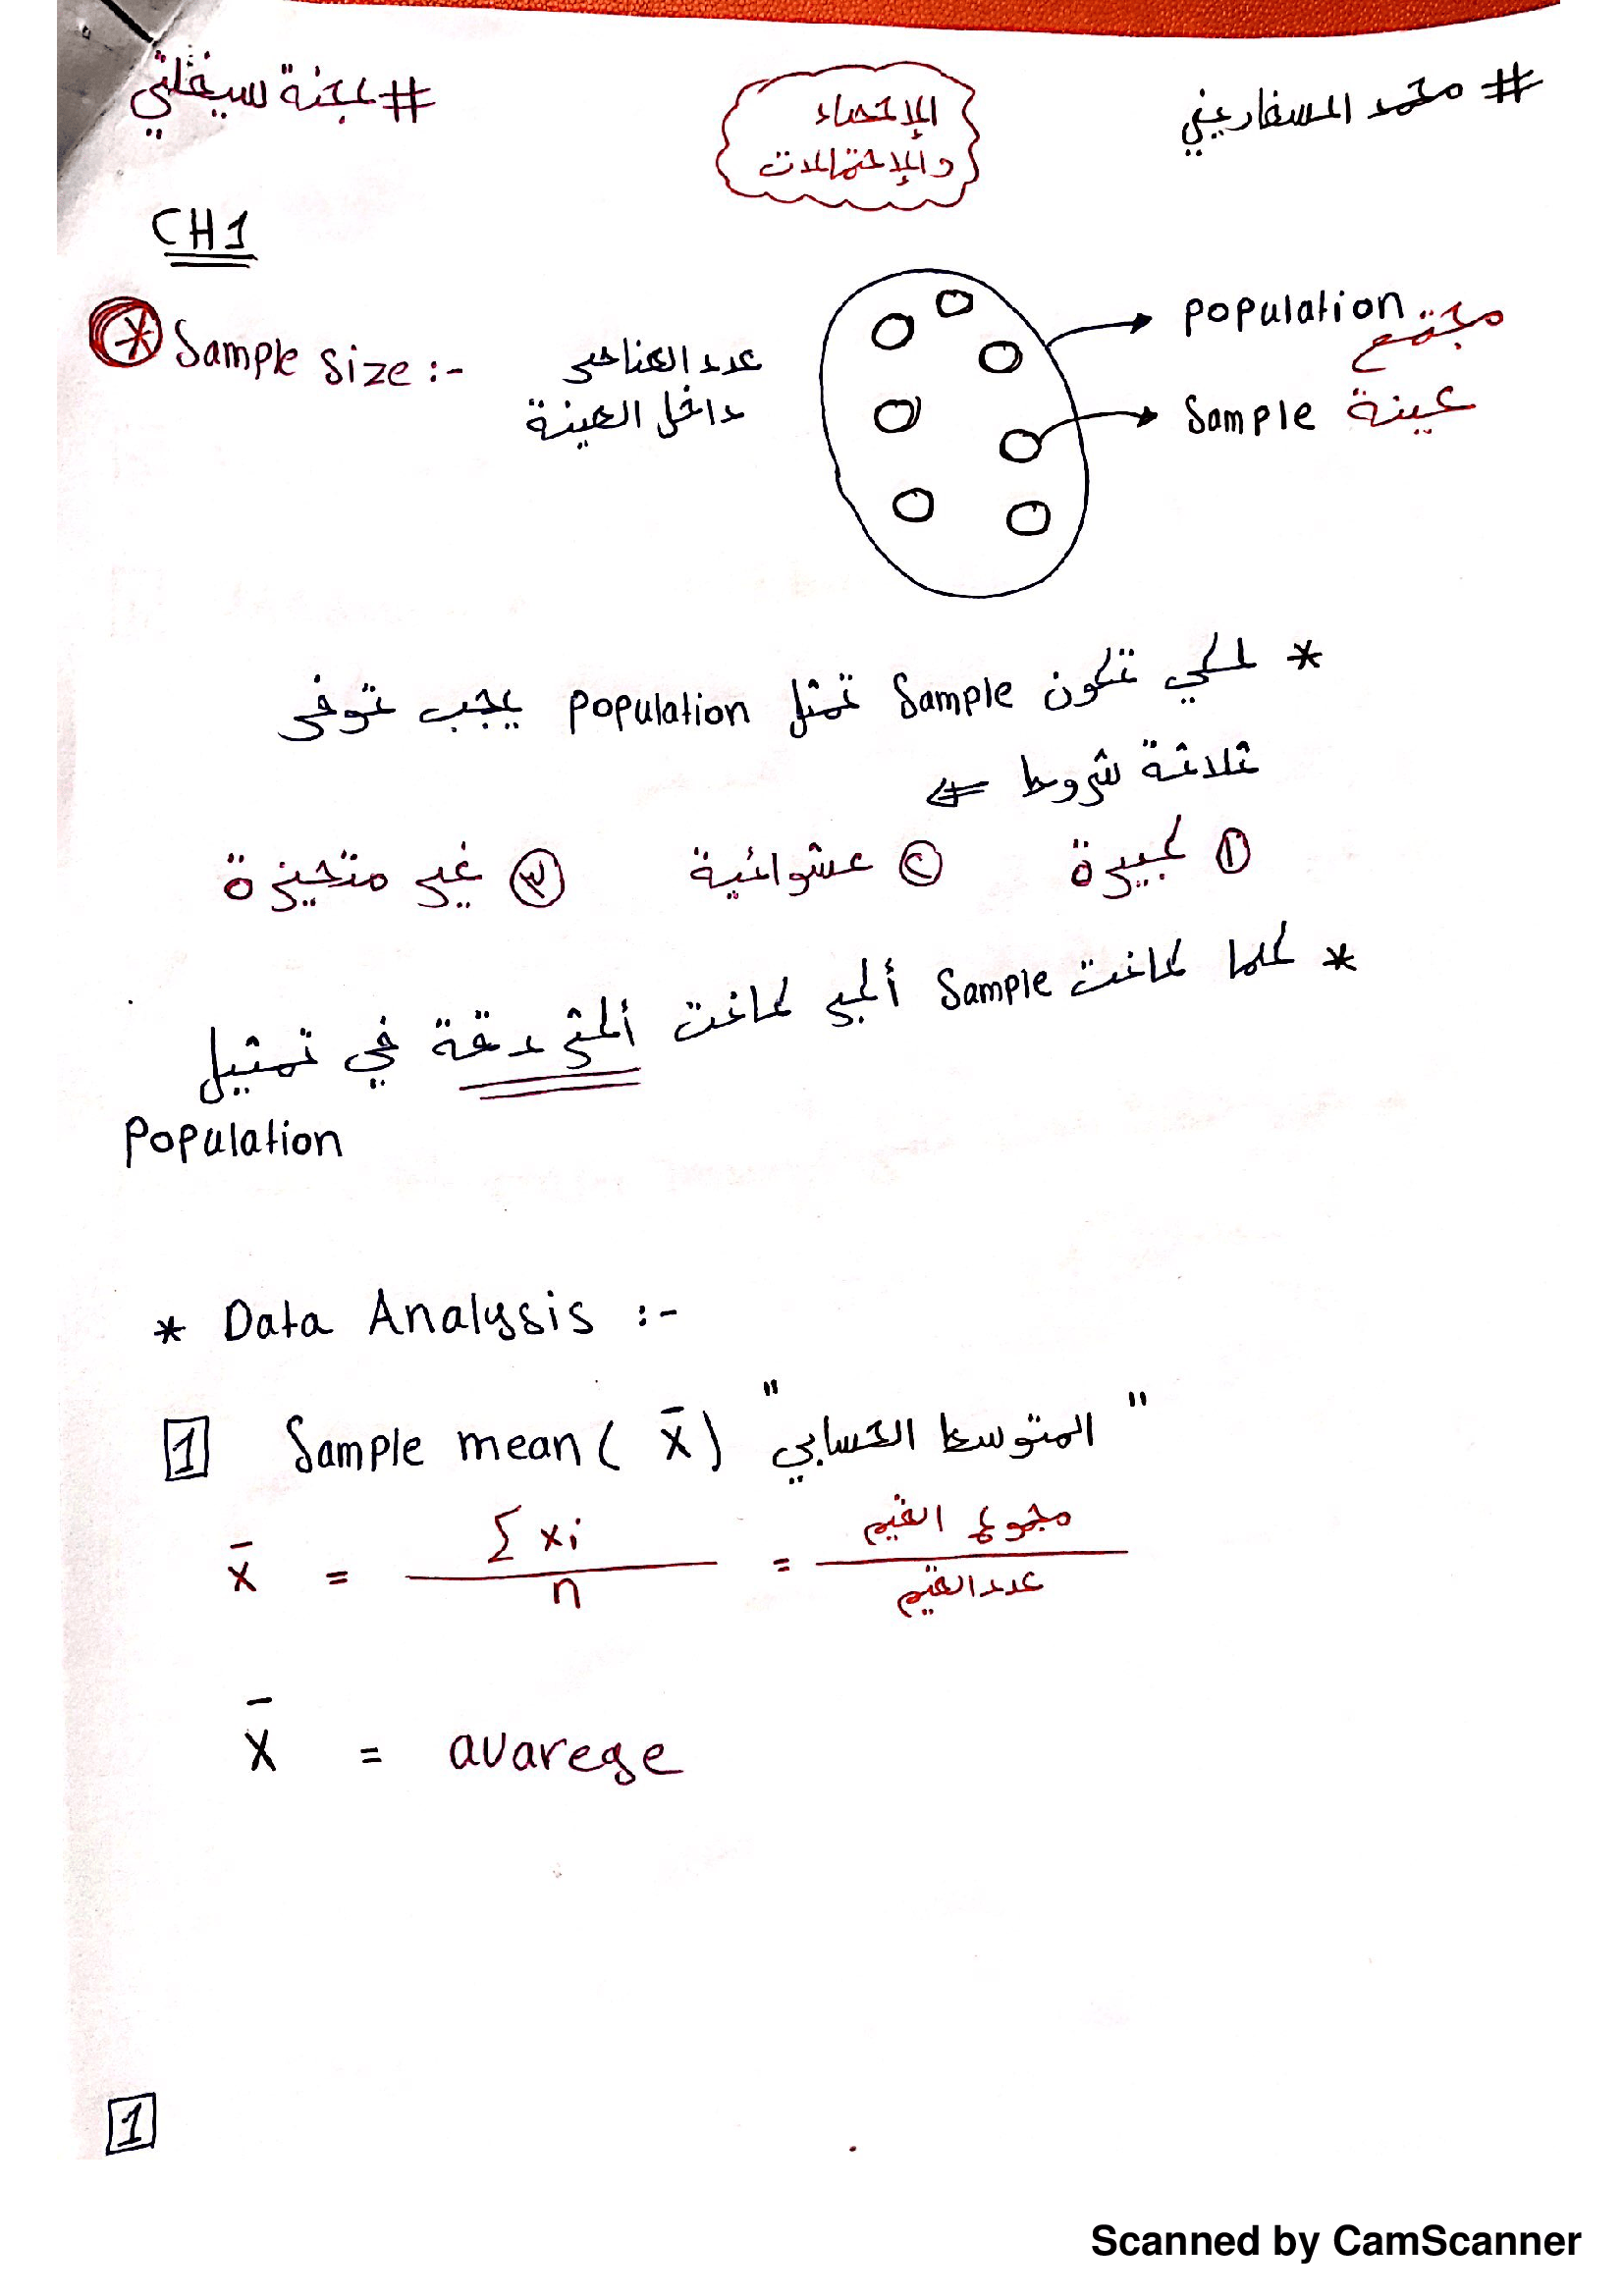 # محمد السفاريني
الإحصاء
والإحتمالات
# عجنة سيفلتي
CH1
* Sample size :- عدد العناصر
داخل العينة
population مجتمع
Sample عينة
* لكي تكون Sample تمثل population يجب توفر
ثلاثة شروط ⇐
① كبيرة ② عشوائية ③ غير متحيزة
* كلما كانت Sample أكبر كانت أكثر دقة في تمثيل
Population
* Data Analysis :-
1 Sample mean ( x̄ ) "المتوسط الحسابي"
x̄ = Σ xi / n = مجموع القيم / عدد القيم
x̄ = avarege
1
Scanned by CamScanner